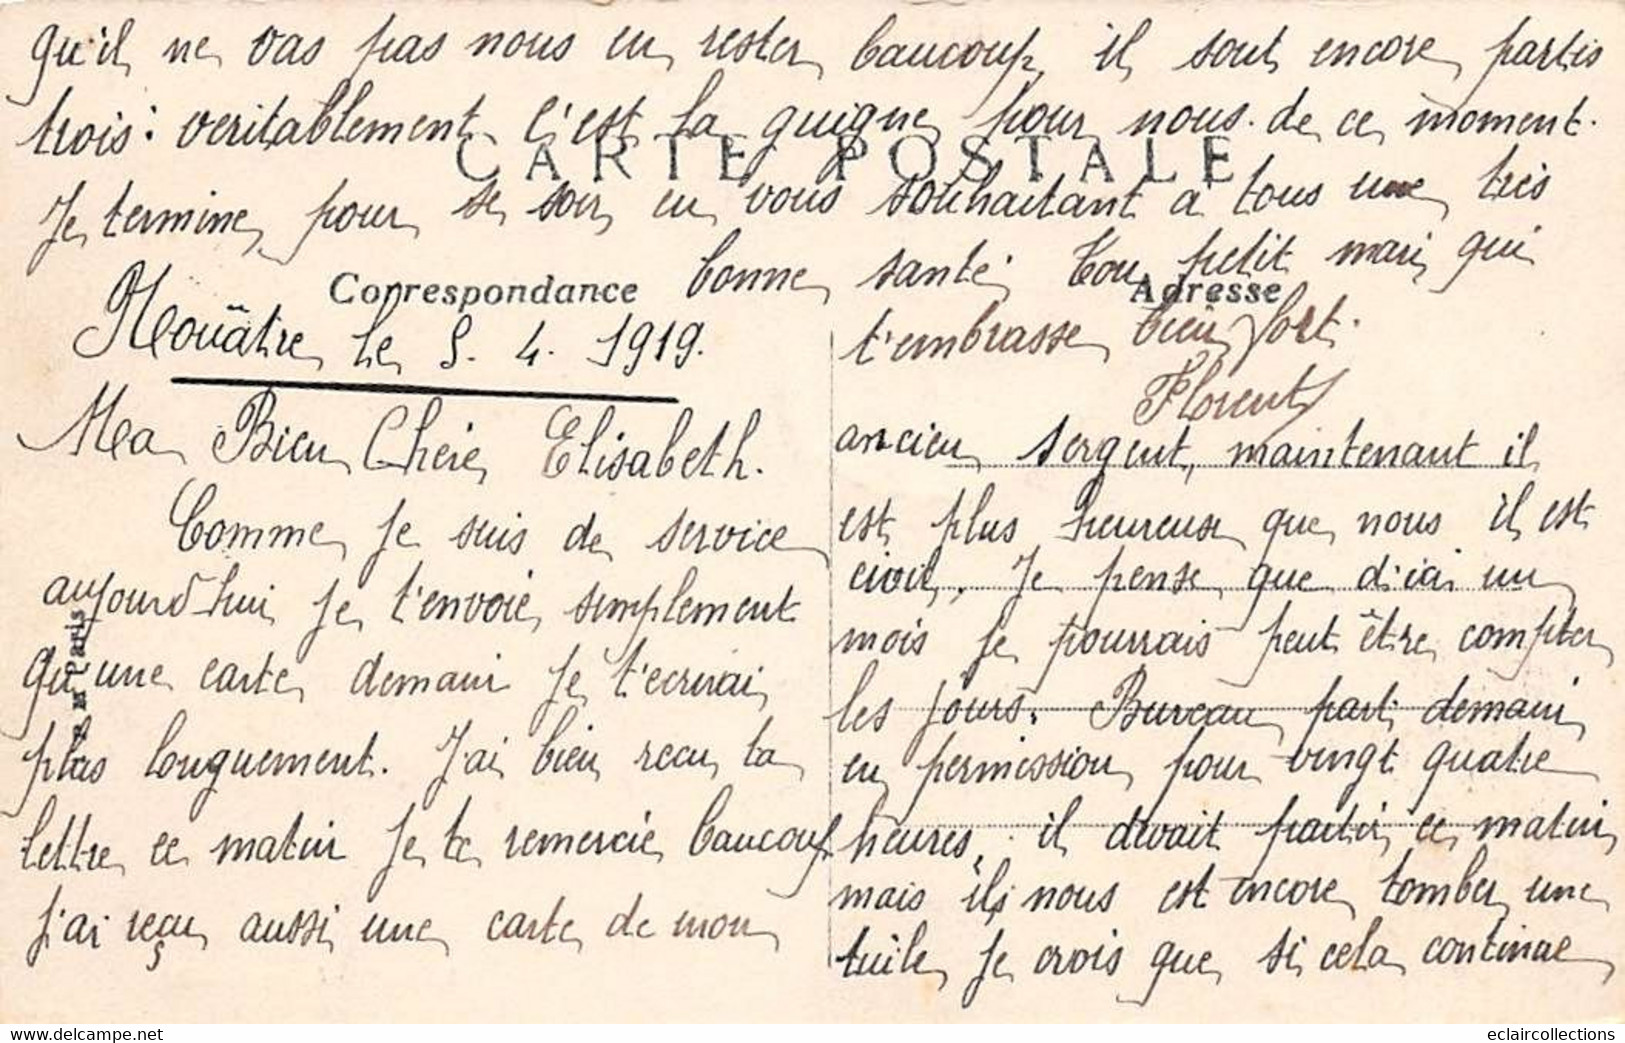 Nouâtre, le 5. 4. 1919.
Ma Bien Chère Elisabeth.
Comme je suis de service
aujourd'hui je t'envoie simplement
qu'une carte demain je t'ecrirai
plus longuement. J'ai bien recu ta
lettre ce matin je te remercie beaucoup
j'ai reçu aussi une carte de mon
ancien sergent, maintenant il
est plus heureuse que nous il est
civil. Je pense que d'ici un
mois je pourrais peut être compter
les jours. Bureau part demain
en permission pour vingt quatre
heures, il devait partir ce matin
mais ils nous est encore tomber une
tuile, je crois que si cela continue
qu'il ne vas pas nous en rester beaucoup, il sont encore partis
trois: veritablement c'est la guigne pour nous de ce moment.
Je termine pour se soir en vous souhaitant à tous une très
bonne santé. Ton petit mari qui
t'embrasse bien fort.
Florent
CARTE POSTALE
Correspondance
Adresse
Paris
eclaircollections
www.delcampe.net